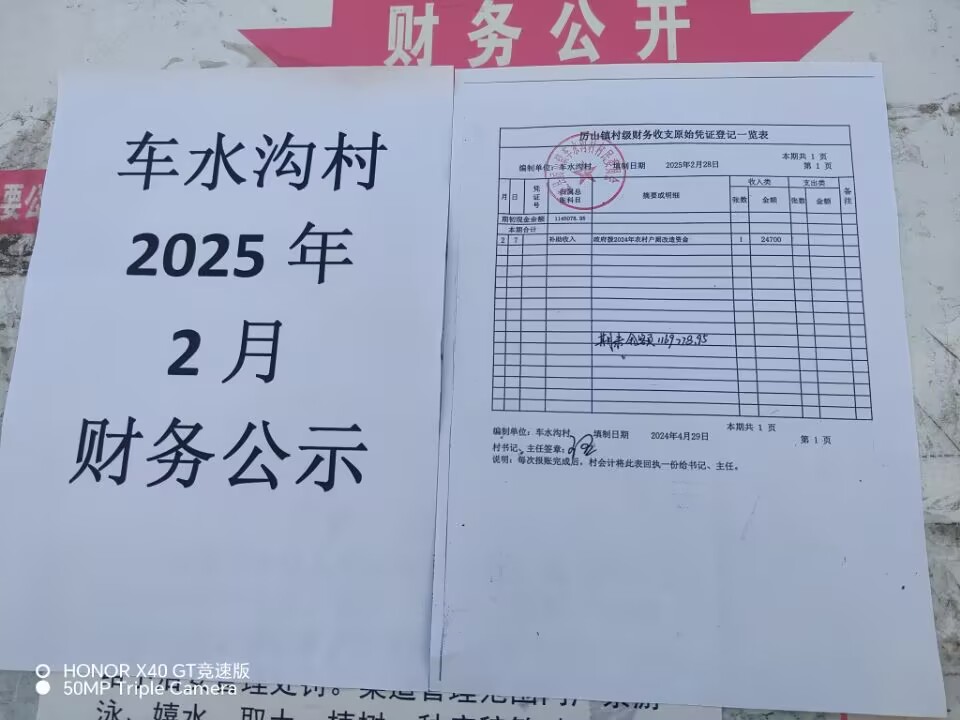 财务公开
车水沟村
2025年
2月
财务公示
厉山镇村级财务收支原始凭证登记一览表
本期共 1 页
编制单位：车水沟村 填制日期 2025年2月28日 第 1 页
月 日 凭证号 摘要或明细 收入类 支出类 备注
张数 金额 张数 金额
期初现金余额
本期合计
2 7 补助收入 政府拨2024年农村户厕改造资金 1 24700
期末余额1169778.95
本期共 1 页
编制单位：车水沟村 填制日期 2024年4月29日 第 1 页
村书记、主任签章：
说明：每次报账完成后，村会计将此表回执一份给书记、主任。
要公
HONOR X40 GT竞速版
50MP Triple Camera
理处罚。渠道管理范围内严禁游
泳、嬉水、取土、植树、种